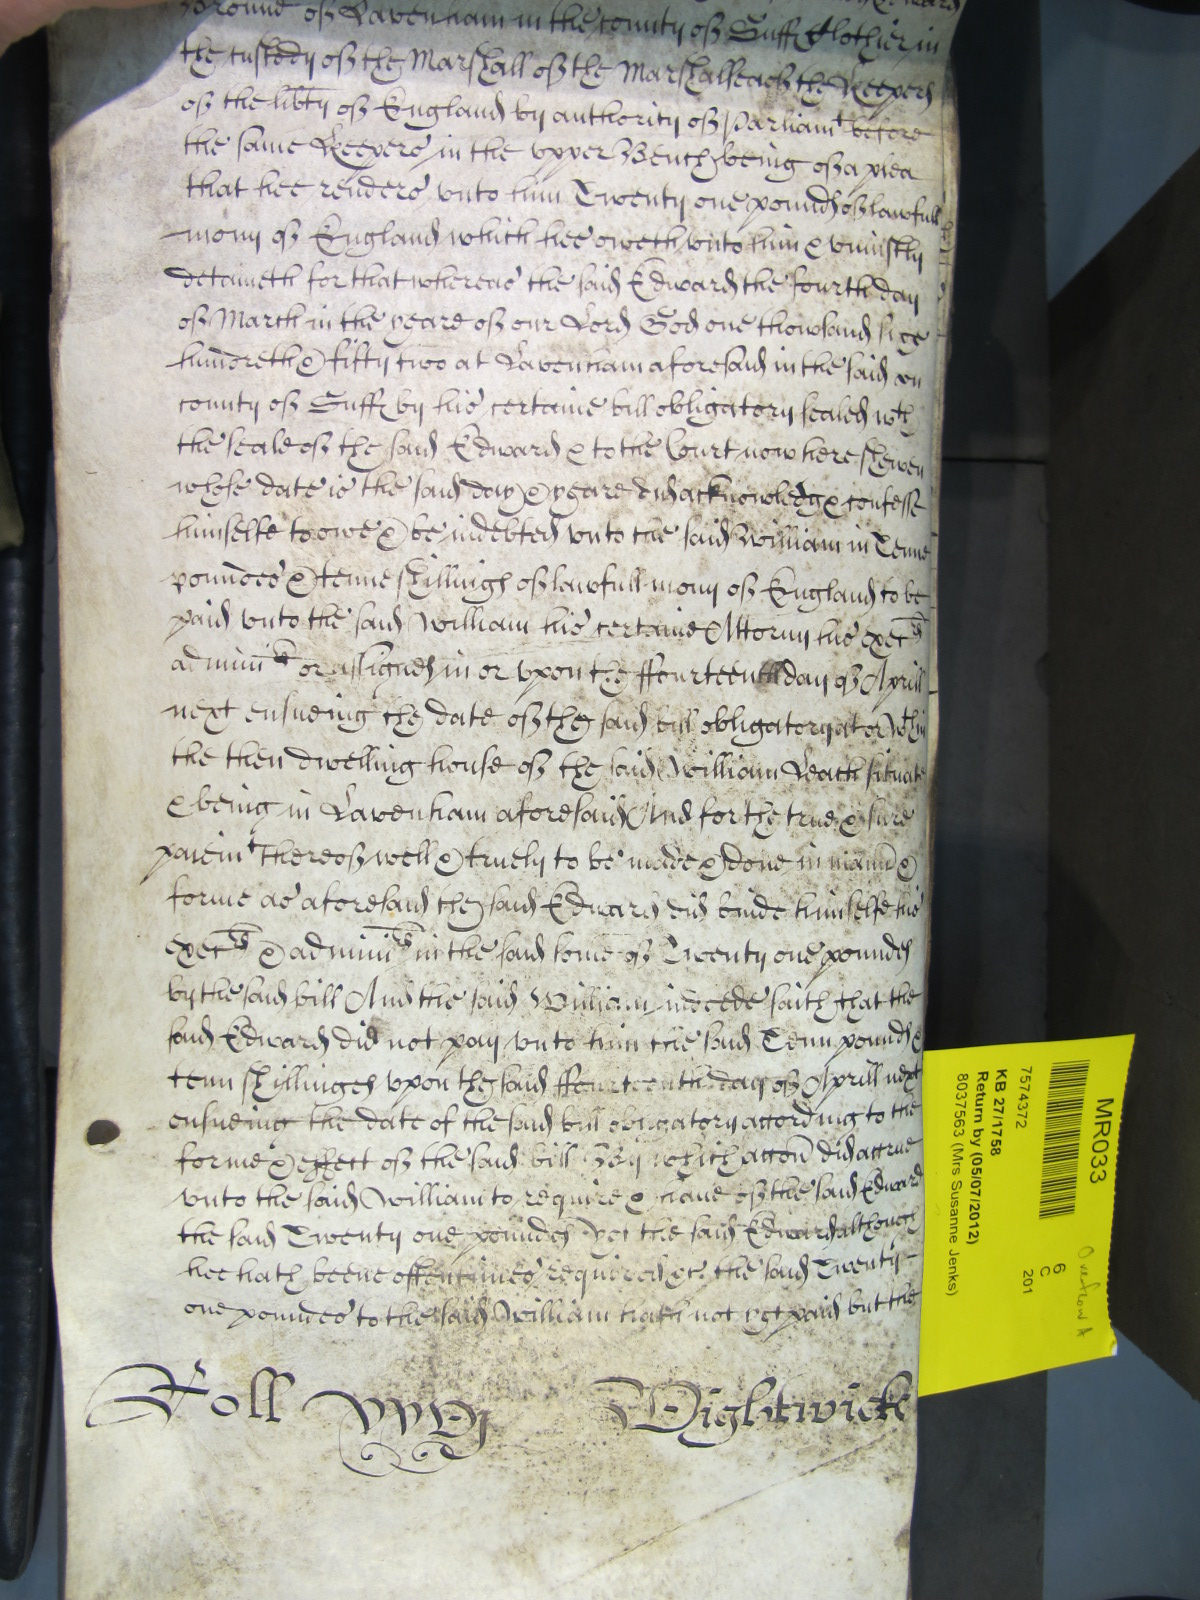 Edward
Ground of Lavenham in the County of Suff Clothier in
the custody of the Marshall of the Marshallsea of the Keepers
of the lib'ty of England by authority of Parliamt before
the same Keepers in the vpper Bench being of a plea
that hee renders vnto him Twenty one pounds of lawfull
mony of England which hee oweth vnto him & vniustly
detaineth for that whereas the said Edward the fourth day
of March in the yeare of our Lord God one thowsand sixe
hundreth & fifty two at Lavenham aforesaid in the said
county of Suff by his certaine bill obligatory sealed wth
the seale of the said Edward & to the Court now here shewen
whose date is the said day & yeare did acknowledg & confesse
himselfe to owe & be indebted vnto the said William in Tenne
poundes & tenne shillings of lawfull mony of England to be
paid vnto the said William his certaine Attorny his execrs
adminrs or assignes in or vpon the ffourteenth day of Aprill
next ensueing the date of the said bill obligatory at or wthin
the then dwelling house of the said William Leach situate
& being in Lavenham aforesaid And for the true & sure
paiemt thereof well & truely to be made & done in mann &
forme as aforesaid the said Edward did binde himselfe his
execrs & adminrs in the said some of Twenty one pounds
by the said bill And the said William indeede saith that the
said Edward did not pay vnto him the said Tenn pounds &
tenn shillinges vpon the said ffourteenth day of Aprill next
ensueing the date of the said bill obligatory according to the
forme & effect of the said bill By which accon did accrue
vnto the said William to require & haue of the said Edward
the said Twenty one pounds Yet the said Edward although
hee hath beene oftentimes required &c the said Twenty
one poundes to the said William hath not yet paid but the
Roll Wightwick
MR033
7574372
KB 27/1758
Return by (05/07/2012)
8037563 (Mrs Susanne Jenks)
6
C
201